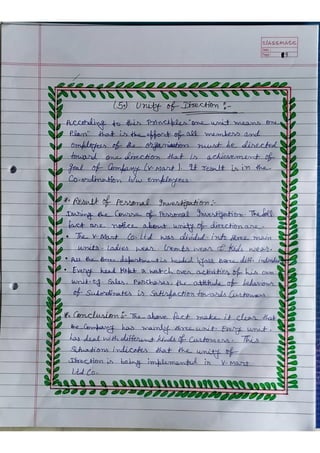 CLASSMATE
Date
Page
(5) Unity of Direction :-
According to this Principles "one unit means one
Plan" that is the effort of all members and
employees of the organisation must be directed
toward one direction that is achievement of
goal of Company (V-Mart). It result is in the
Co-ordination b/w employees.
Result of Personal Investigation:-
During the Course of Personal Investigation The foll
fact are notice about unity of direction are.
• The V-Mart Co. Ltd has divided into three main
units Ladies wear Gents wear & Kids wear.
• All the three department is headed by
• Every head kept a watch over activities of his own
unit of Sales. Purchases the attitude of behaviour
of Subordinates is Satisfaction towards Customers
Conclusion:- The above fact make it clear that
the Company has mainly three unit. Every unit
has deal with different kinds of Customers. This
Situations indicates that the unity of
Direction is being implemented in V-Mart
Ltd Co.